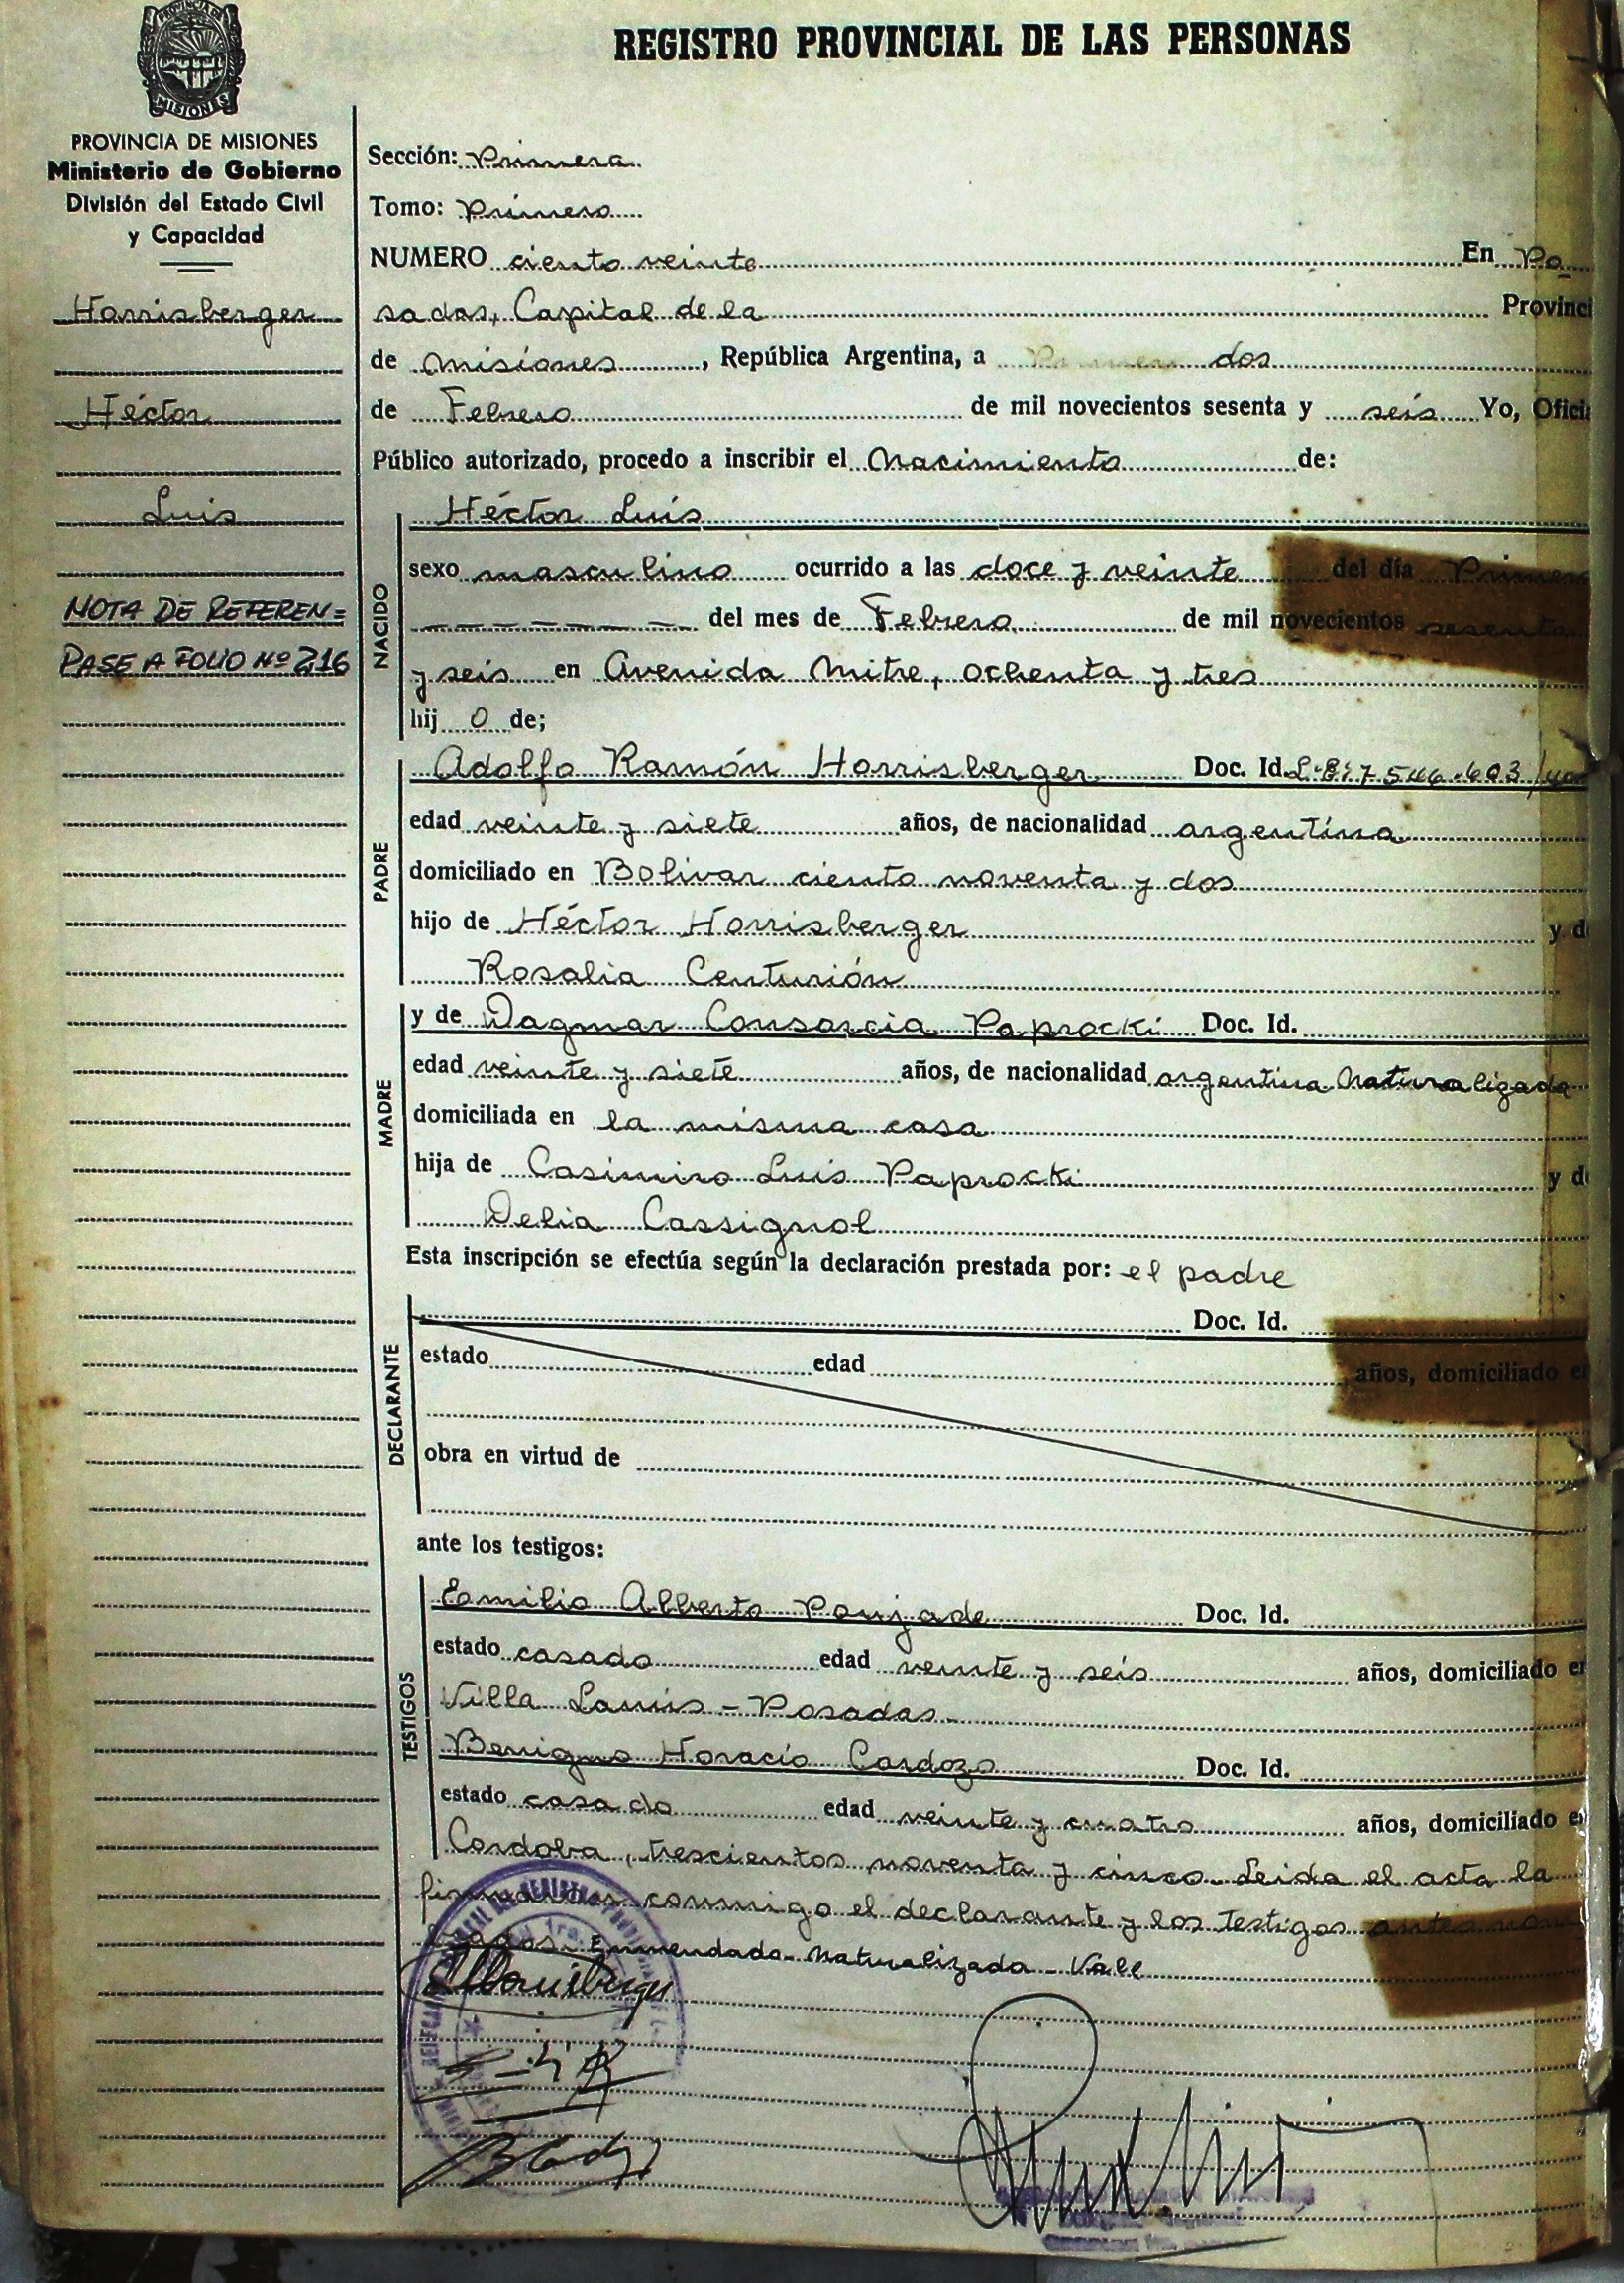 PROVINCIA DE
MISIONES
REGISTRO PROVINCIAL DE LAS PERSONAS
PROVINCIA DE MISIONES
Ministerio de Gobierno
División del Estado Civil
y Capacidad
Horrisberger
Héctor
Luis
NOTA DE REFEREN=
PASE A FOLIO Nº 216
Sección: Primera
Tomo: Primero
NUMERO ciento veinte En Po_
sadas, Capital de la Provinci
de Misiones, República Argentina, a dos
de Febrero de mil novecientos sesenta y seis Yo, Ofici
Público autorizado, procedo a inscribir el Nacimiento de:
NACIDO
Héctor Luis
sexo masculino ocurrido a las doce y veinte del día Primero
del mes de Febrero de mil novecientos sesenta
y seis en Avenida Mitre, ochenta y tres
hij o de;
PADRE
Adolfo Ramón Horrisberger Doc. Id. L.E: 7.546.603
edad veinte y siete años, de nacionalidad argentina
domiciliado en Bolivar ciento noventa y dos
hijo de Héctor Horrisberger y d
Rosalia Centurión
MADRE
y de Dagmar Consorcia Paprocki Doc. Id.
edad veinte y siete años, de nacionalidad argentina Naturalizada
domiciliada en la misma casa
hija de Casimiro Luis Paprocki y d
Delia Cassignol
Esta inscripción se efectúa según la declaración prestada por: el padre
DECLARANTE
Doc. Id.
estado edad años, domiciliado e
obra en virtud de
ante los testigos:
TESTIGOS
Emilio Alberto Poujade Doc. Id.
estado casado edad veinte y seis años, domiciliado e
Villa Lanús - Posadas
Benigno Horacio Cardozo Doc. Id.
estado casado edad veinte y cuatro años, domiciliado e
Cordoba, trescientos noventa y cinco. Leida el acta la
conmigo el declarante y los testigos antes
Enmendado - Naturalizada - Vale